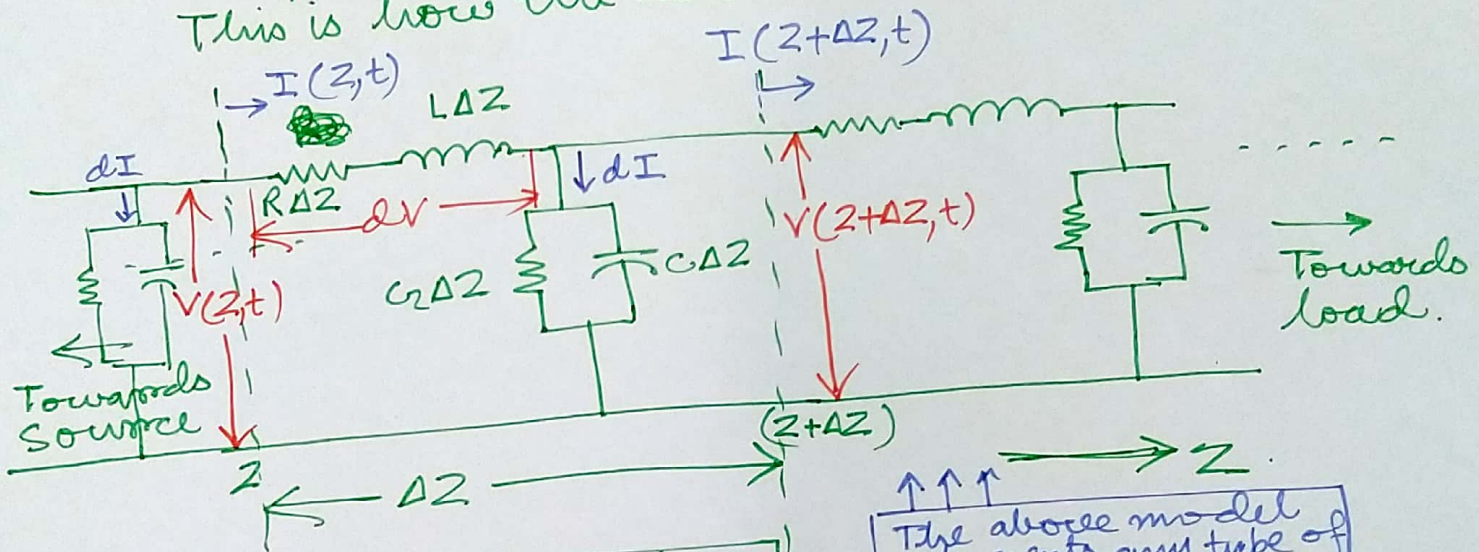 This is how
I(Z,t)
I(Z+ΔZ,t)
LΔZ
dI
dI
RΔZ
dV
V(Z,t)
V(Z+ΔZ,t)
GΔZ
CΔZ
.....
Towards
load.
Towards
source
Z
(Z+ΔZ)
ΔZ
Z.
The above model
any type of